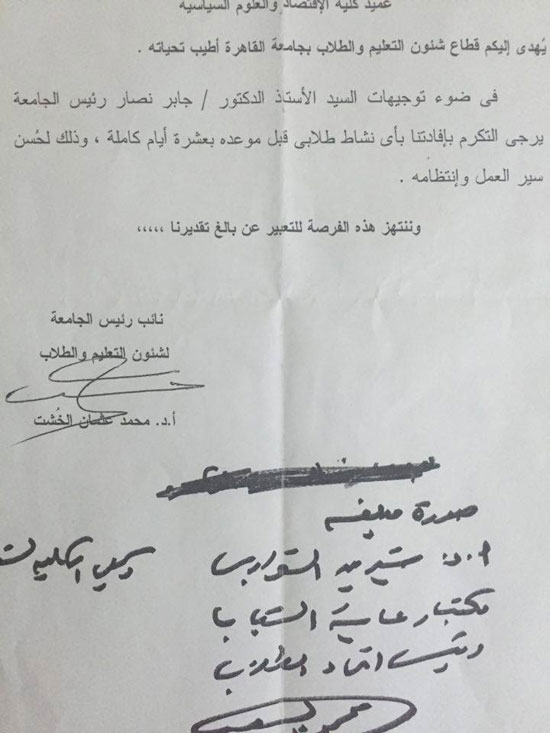 عميد كلية الإقتصاد والعلوم السياسية
يُهدى إليكم قطاع شئون التعليم والطلاب بجامعة القاهرة أطيب تحياته .
فى ضوء توجيهات السيد الأستاذ الدكتور / جابر نصار رئيس الجامعة
يرجى التكرم بإفادتنا بأى نشاط طلابى قبل موعده بعشرة أيام كاملة ، وذلك لحُسن
سير العمل وإنتظامه .
وننتهز هذه الفرصة للتعبير عن بالغ تقديرنا ،،،،،
نائب رئيس الجامعة
لشئون التعليم والطلاب
أ.د. محمد عثمان الخُشت
صورة
ا.د. الشواربى
مكتب رعاية الشباب
رئيس اتحاد الطلاب